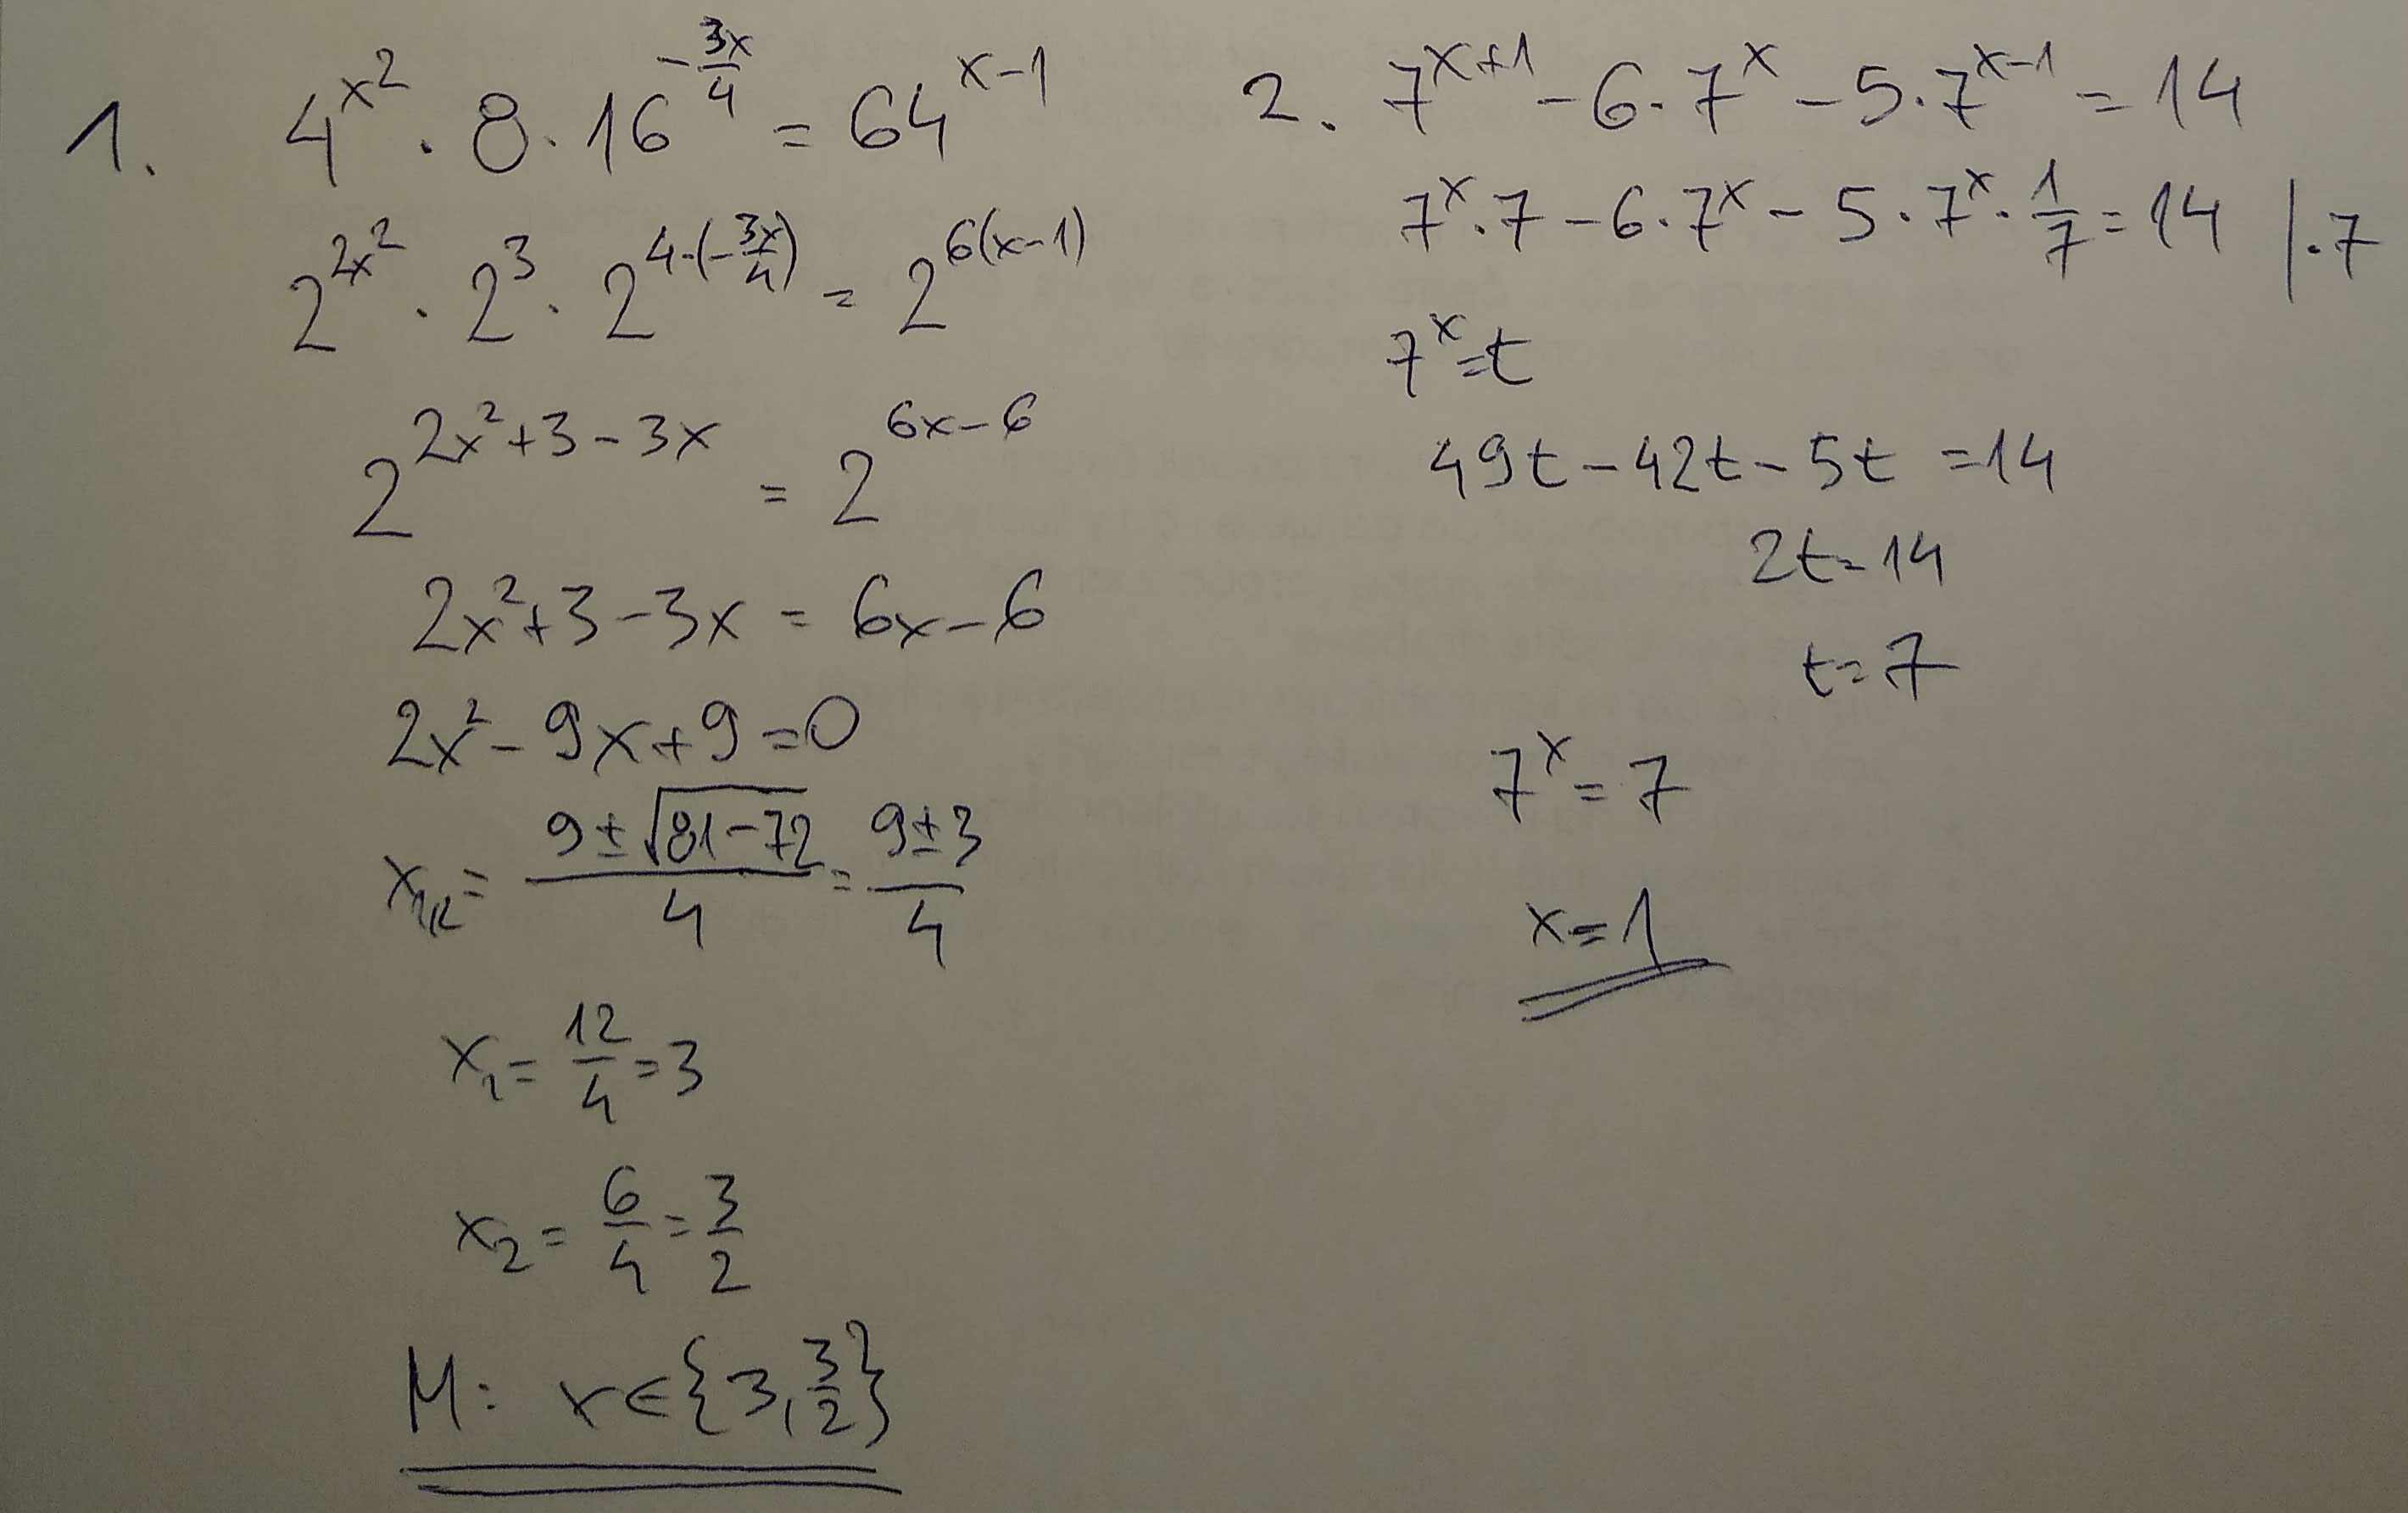 1. 4^{x^2} · 8 · 16^{-\frac{3x}{4}} = 64^{x-1}
2^{2x^2} · 2^3 · 2^{4·(-\frac{3x}{4})} = 2^{6(x-1)}
2^{2x^2+3-3x} = 2^{6x-6}
2x^2+3-3x = 6x-6
2x^2-9x+9=0
x_{1,2} = \frac{9±\sqrt{81-72}}{4} = \frac{9±3}{4}
x_1 = \frac{12}{4} = 3
x_2 = \frac{6}{4} = \frac{3}{2}
M: x∈{3, \frac{3}{2}}
2. 7^{x+1} - 6·7^x - 5·7^{x-1} = 14
7^x·7 - 6·7^x - 5·7^x·\frac{1}{7} = 14 |·7
7^x = t
49t - 42t - 5t = 14
2t = 14
t = 7
7^x = 7
x = 1